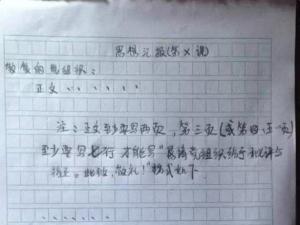 思想汇报(第×课)
敬爱的党组织：
正文、、、、、、
注：正文至少要写两页，第三页(或第四、五一页)
至少要写七行才能写"恳请党组织给予批评与
指正。此致，敬礼！"格式如下
、、、、、、